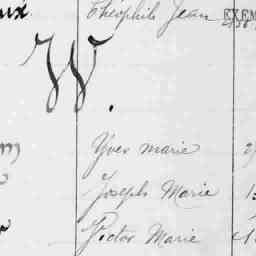 Théophile Jean EXEM
W.
Yves Marie
Joseph Marie
Victor Marie